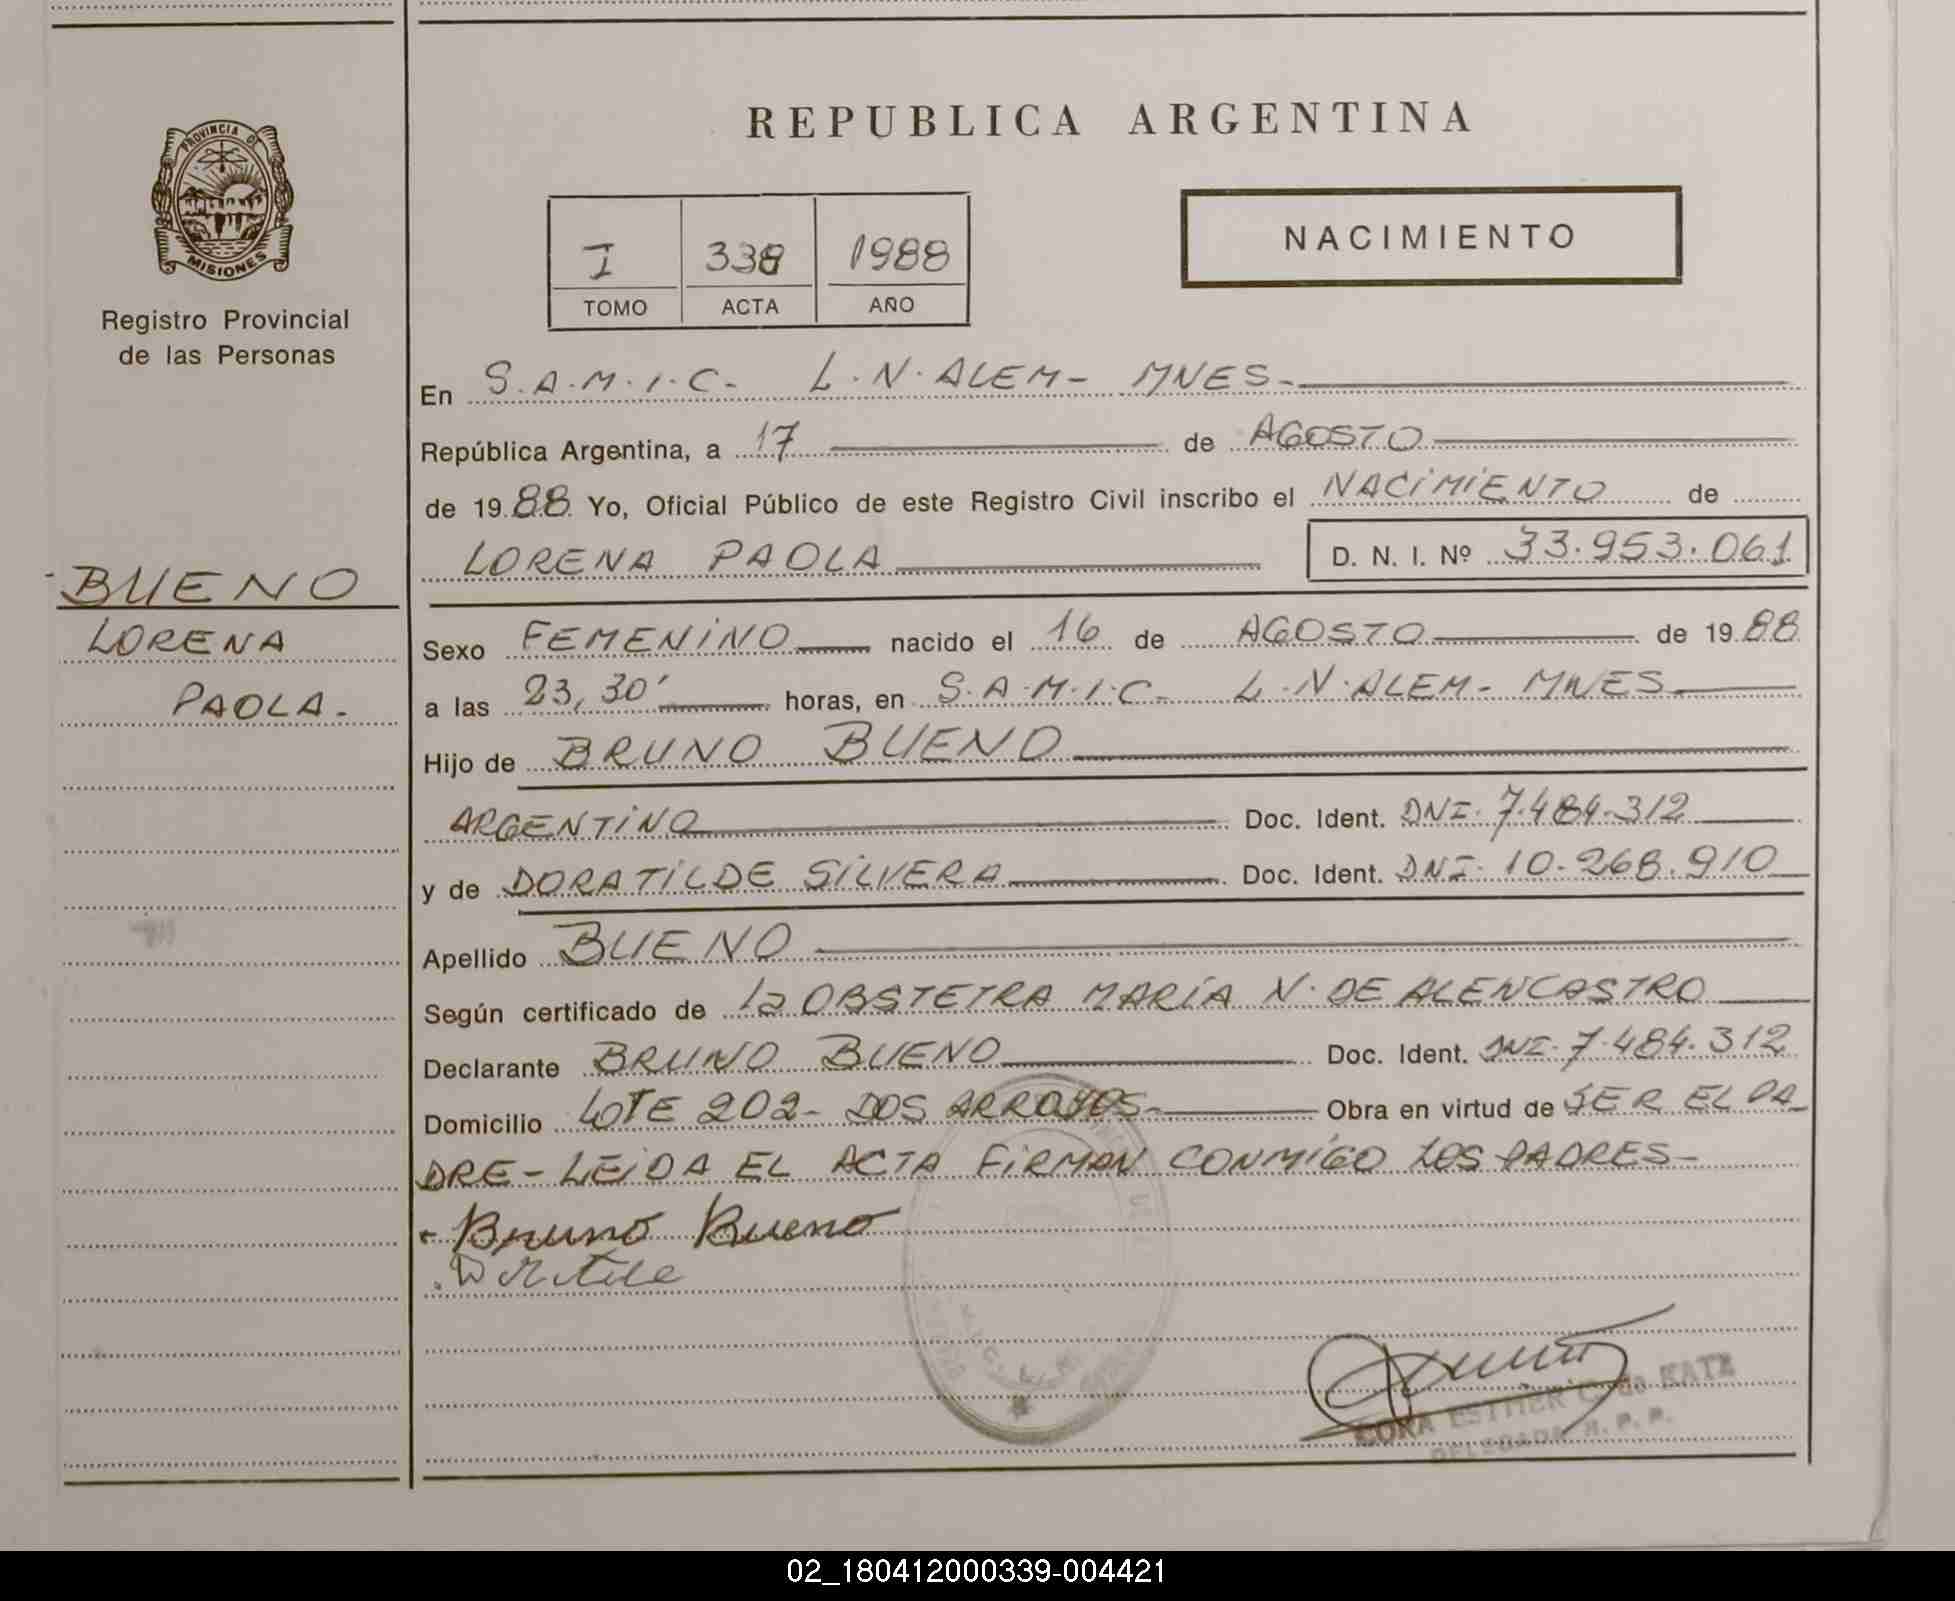 PROVINCIA DE
MISIONES
Registro Provincial
de las Personas
BUENO
LORENA
PAOLA.
REPUBLICA ARGENTINA
I 338 1988
TOMO ACTA AÑO
NACIMIENTO
En S.A.M.I.C- L.N.ALEM- MNES-
República Argentina, a 17 de AGOSTO
de 1988 Yo, Oficial Público de este Registro Civil inscribo el NACIMIENTO de
LORENA PAOLA D. N. I. Nº 33.953.061
Sexo FEMENINO nacido el 16 de AGOSTO de 1988
a las 23,30' horas, en S.A.M.I.C- L.N.ALEM- MNES
Hijo de BRUNO BUENO
ARGENTINO Doc. Ident. DNI. 7.484.312
y de DORATILDE SILVERA Doc. Ident. DNI. 10.268.910
Apellido BUENO
Según certificado de la OBSTETRA MARÍA N. DE ALENCASTRO
Declarante BRUNO BUENO Doc. Ident. DNI. 7.484.312
Domicilio LOTE 202- DOS ARROYOS- Obra en virtud de SER EL PA
DRE- LEIDA EL ACTA FIRMAN CONMIGO LOS PADRES-
Bruno Bueno
ESTHER C. de KATZ
DELEGADA R. P. P.
02_180412000339-004421